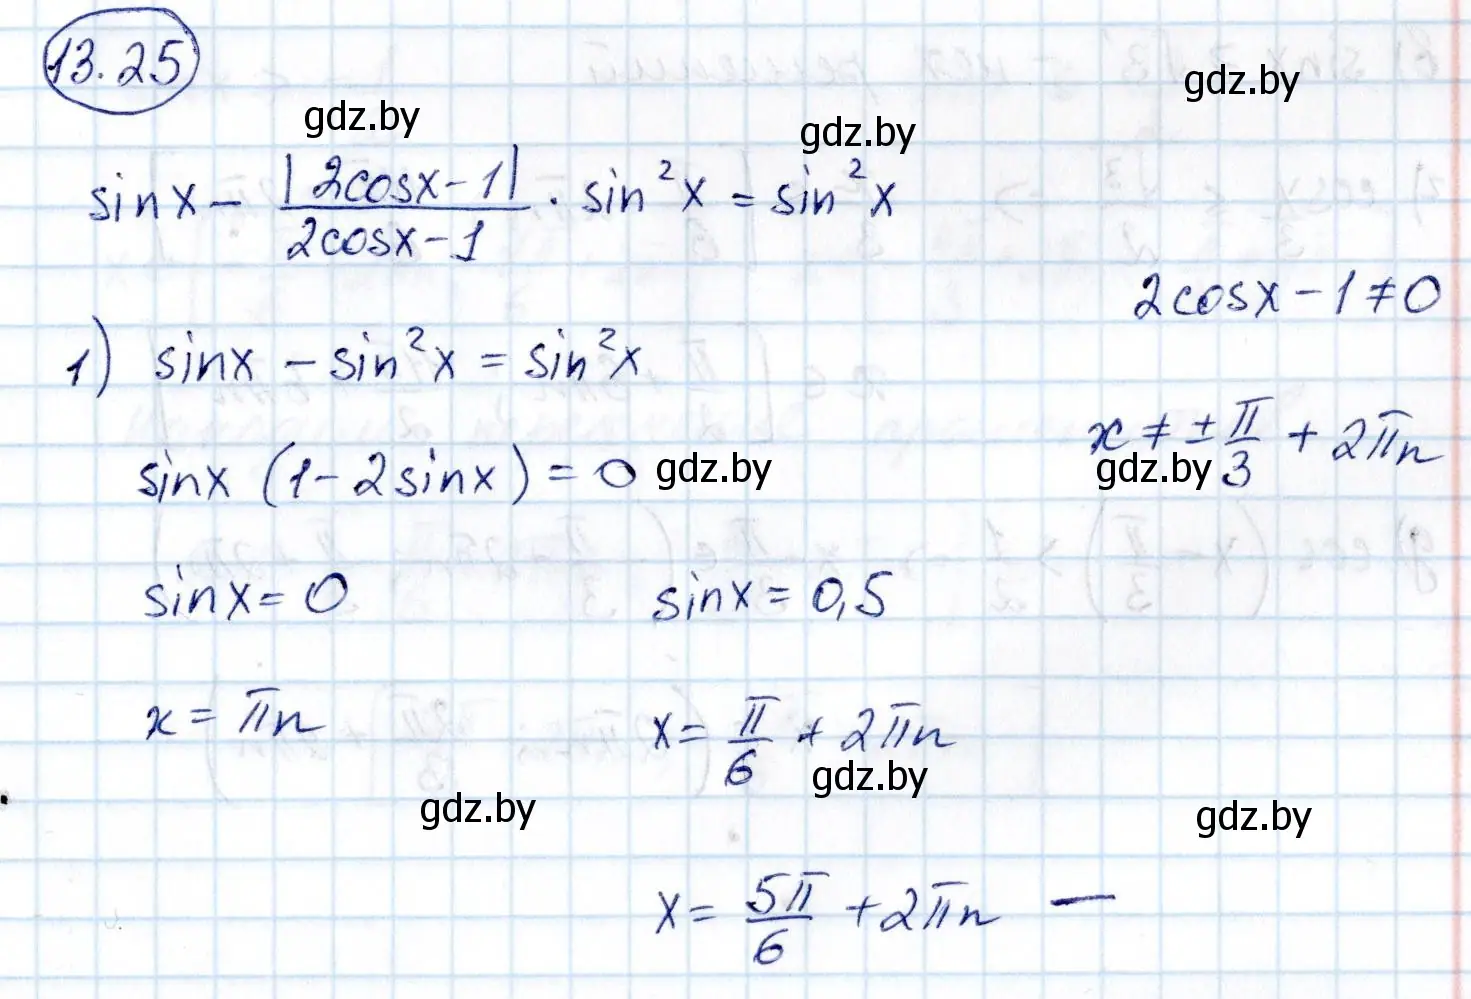 13.25
gdz.by
gdz.by
gdz.by
sinx - |2cosx-1| / 2cosx-1 · sin²x = sin²x
2cosx - 1 ≠ 0
1) sinx - sin²x = sin²x
x ≠ ± π/3 + 2πn
sinx (1 - 2sinx) = 0
gdz.by
gdz.by
sinx = 0
sinx = 0,5
x = πn
x = π/6 + 2πn
gdz.by
gdz.by
gdz.by
x = 5π/6 + 2πn —